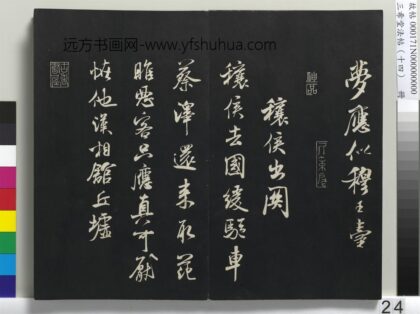 远方书画网-www.yfshuhua.com
故帖 000171N000000000
三希堂法帖（十四） 冊
夢應似穆王臺
神品
穰侯出関
穰侯去國緩驅車
蔡澤還来取范
睢惡客只應真可厭
恠他漢相館丘墟
24